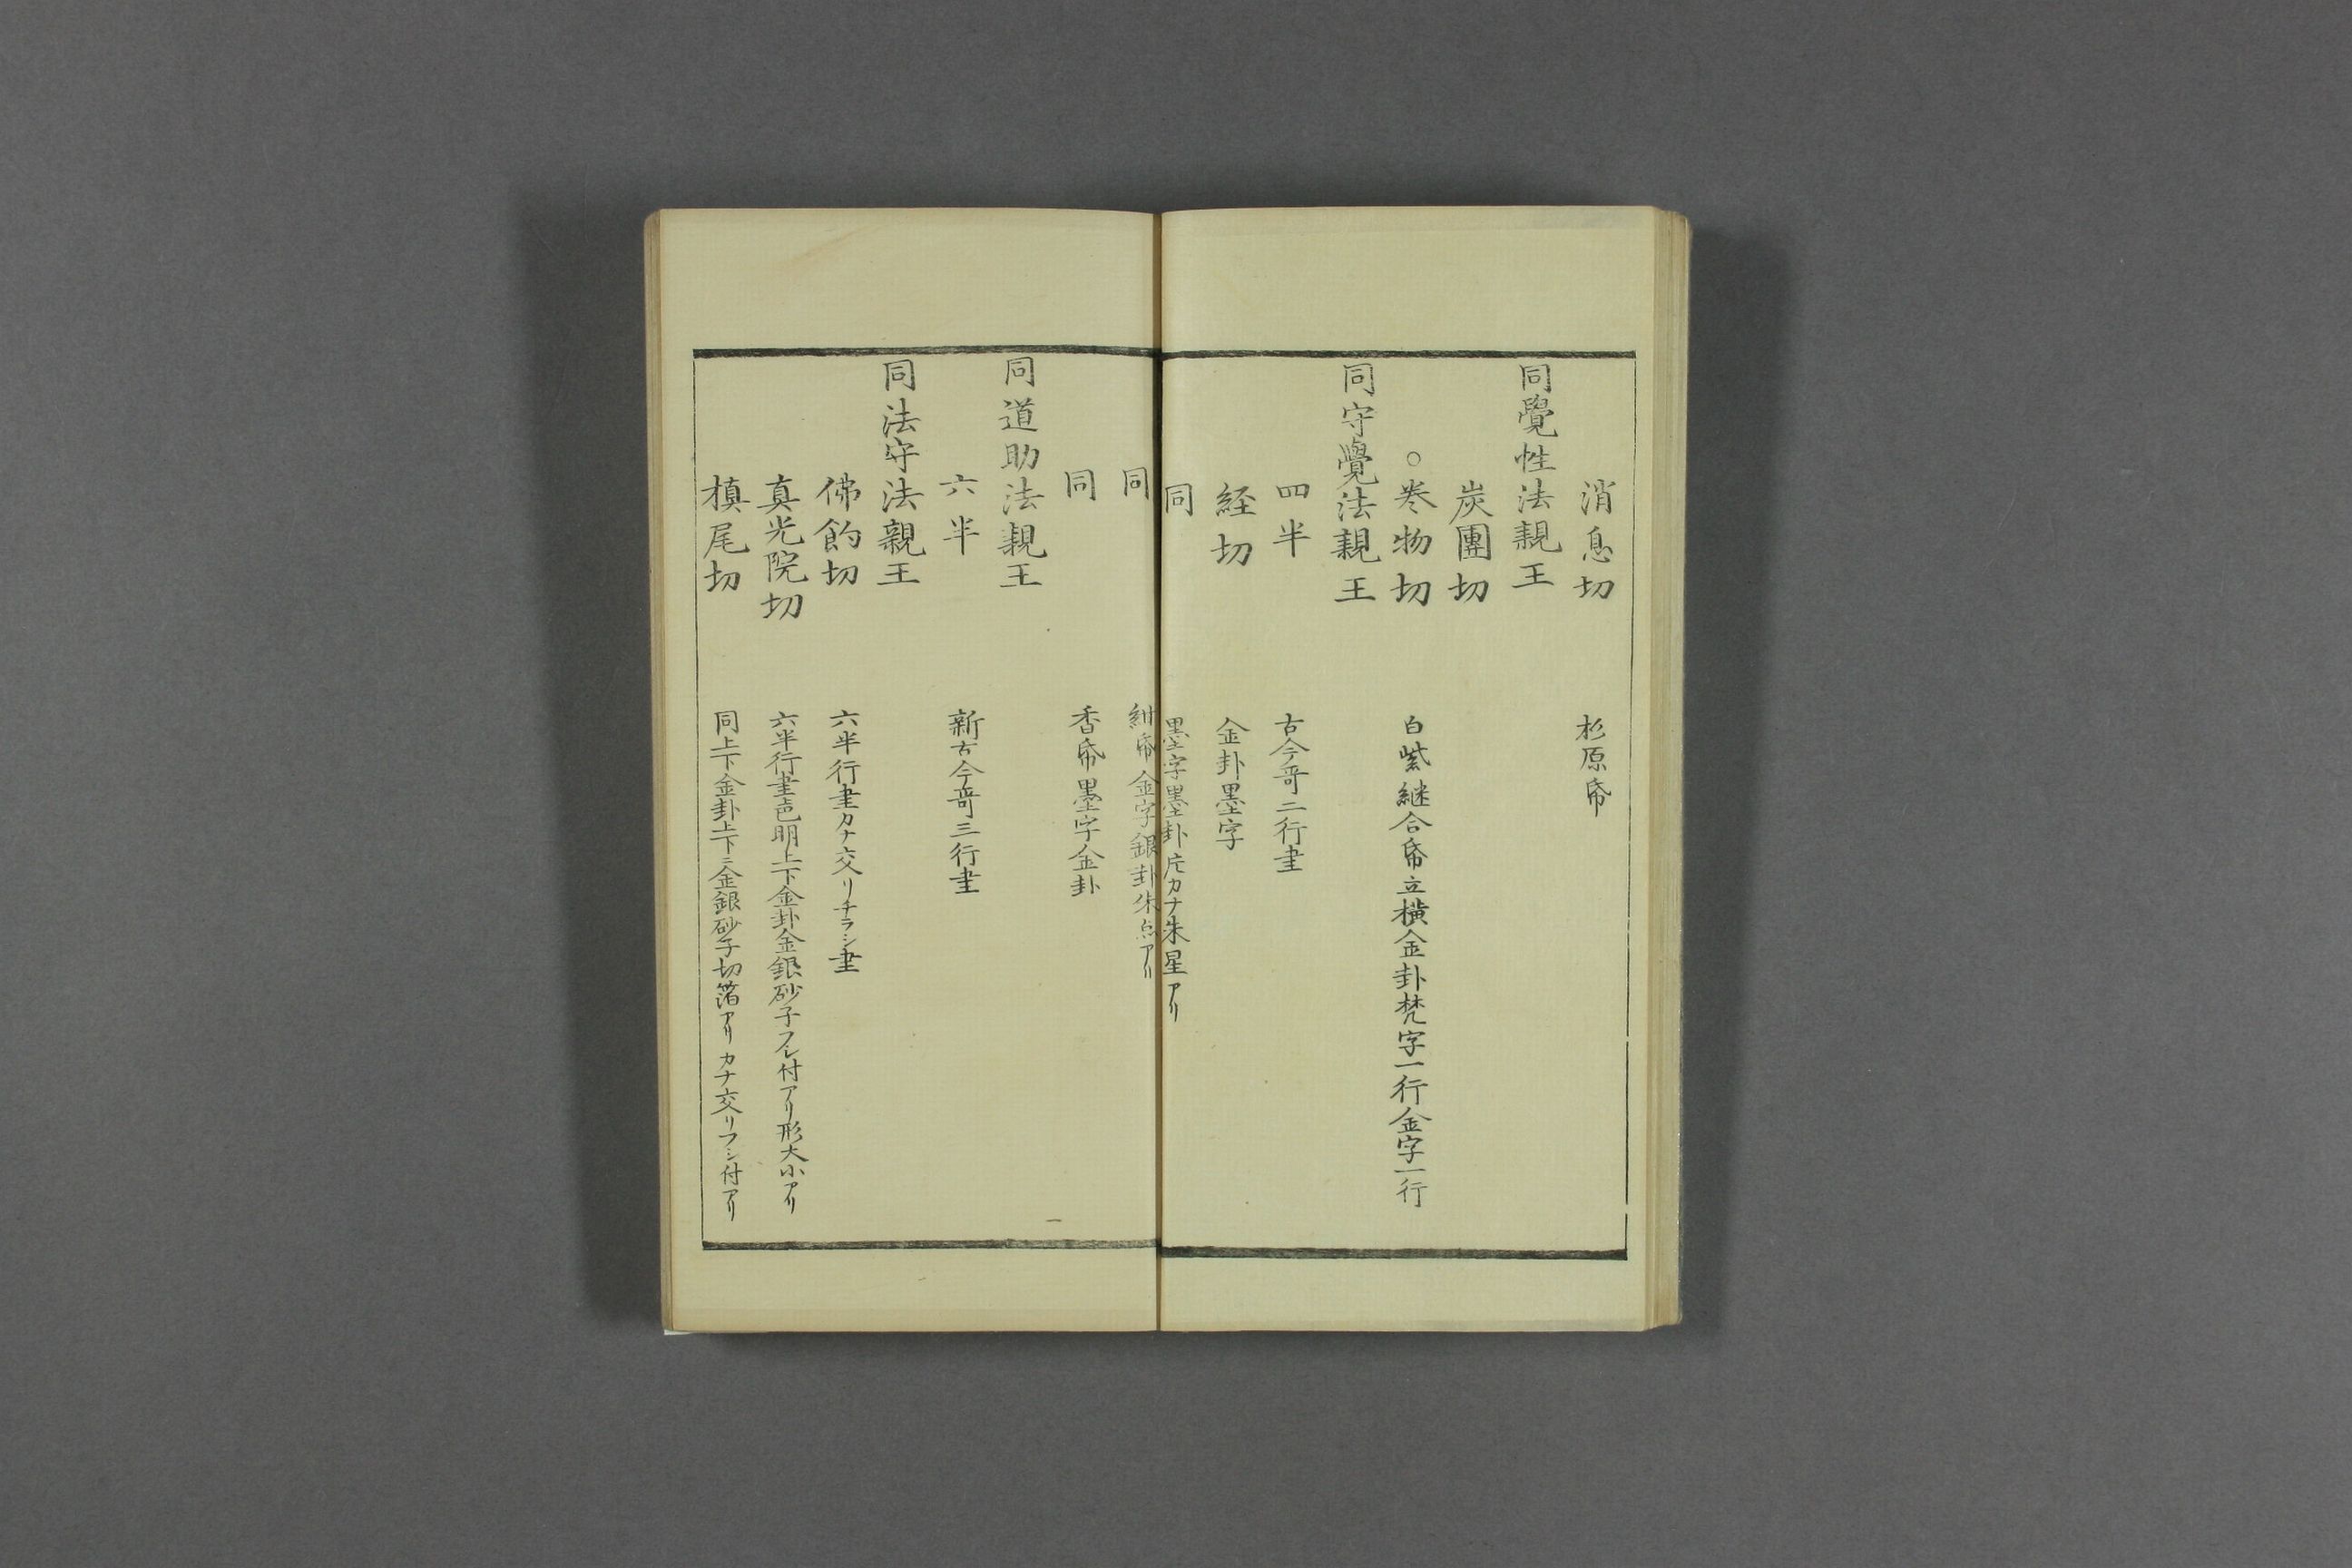 消息切　杉原帋
同覺性法親王
炭團切
○巻物切　白紫継合帋立横金卦梵字一行金字一行
同守覺法親王
四半　古今哥二行書
経切　金卦墨字
同　墨字墨卦片カナ朱星アリ
同　紺帋金字銀卦朱点アリ
同　香帋墨字金卦
同道助法親王
六半　新古今哥三行書
同法守法親王
佛餉切　六半行書カナ交リチラシ書
真光院切　六半行書色明上下金卦金銀砂子フシ付アリ形大小アリ
槙尾切　同上下金卦上下ニ金銀砂子切箔アリカナ交リフシ付アリ